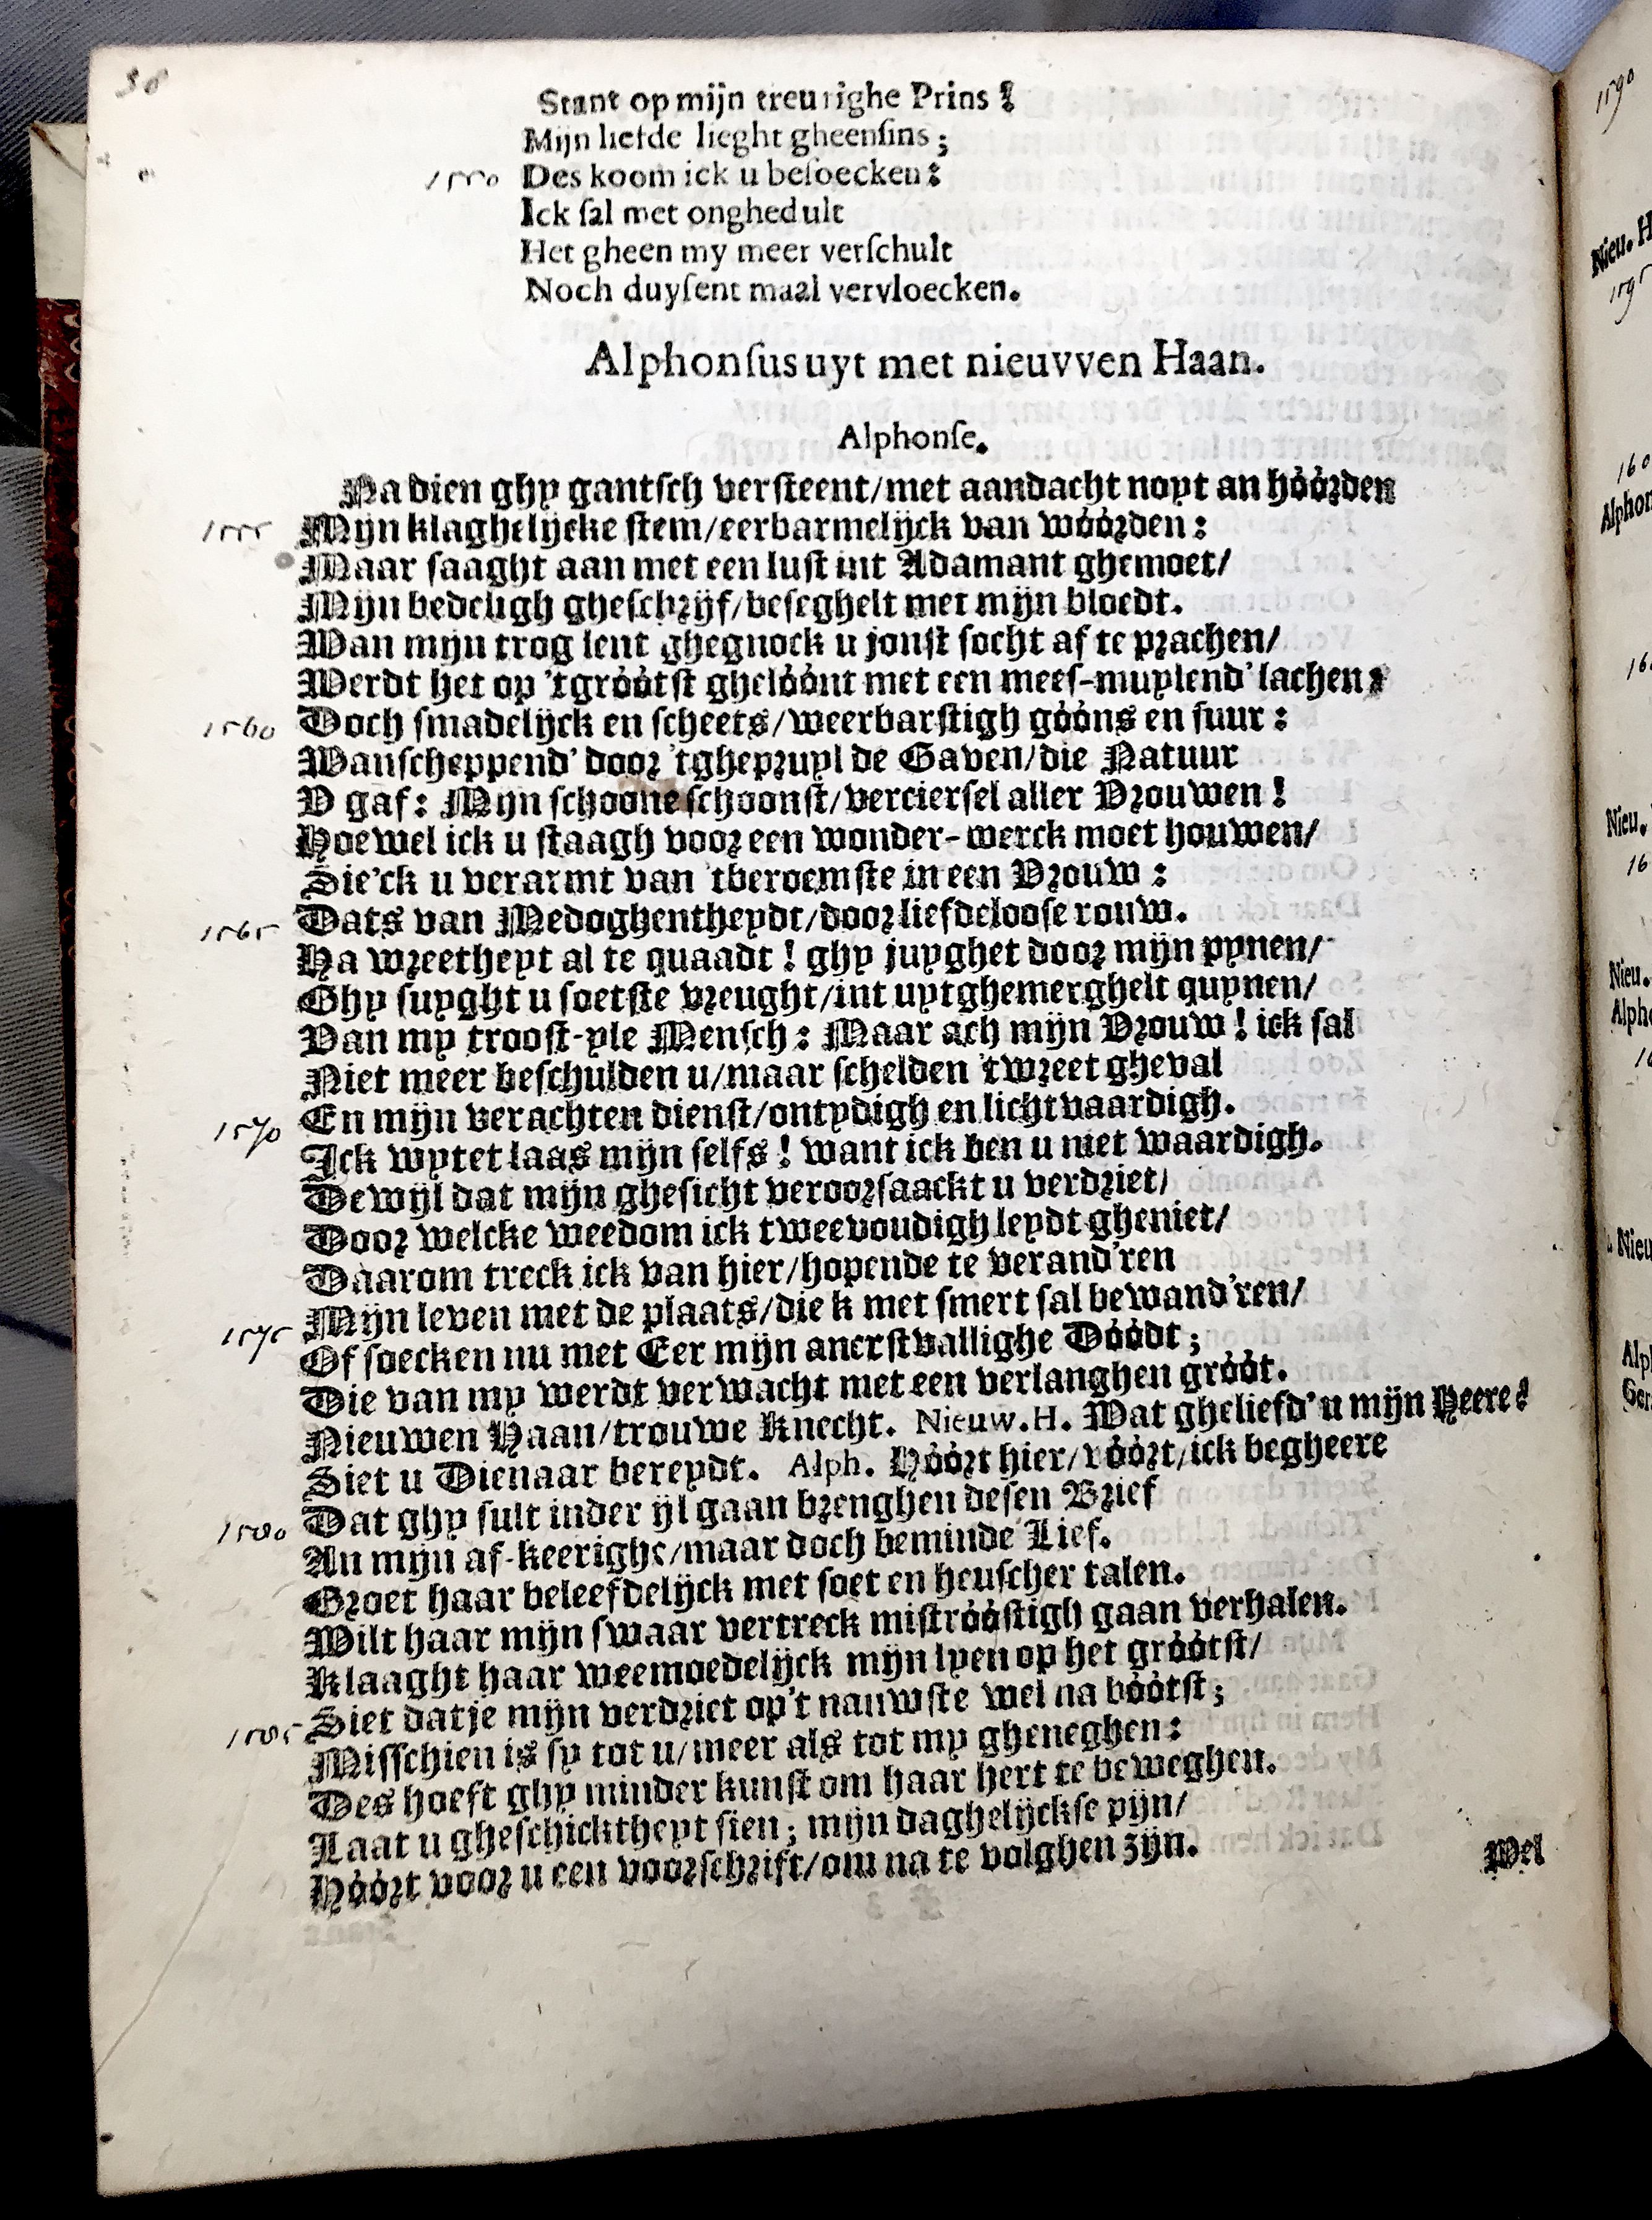 36
Stant op mijn treurighe Prins!
Mijn liefde lieght gheenſins;
1550 Des koom ick u beſoecken:
Ick ſal met onghedult
Het gheen my meer verſchult
Noch duyſent maal vervloecken.
Alphonſus uyt met nieuvven Haan.
Alphonſe.
Na dien ghy gantſch verſteent/met aandacht noyt an hóórden
1555 Mijn klaghelijcke ſtem/eerbarmelijck van wóórden:
Maar ſaaght aan met een luſt int Adamant ghemoet/
Mijn bedeligh gheſchrijf/beſeghelt met mijn bloedt.
Wan mijn trog lent ghegnock u jonſt ſocht af te prachen/
Werdt het op 'tgróótſt ghelóónt met een mees-muylend' lachen:
1560 Doch ſmadelijck en ſcheets/weerbarſtigh góóns en ſuur:
Wanſcheppend' door 'tghepruyl de Gaven/die Natuur
V gaf: Mijn ſchoone ſchoonſt/vercierſel aller Vrouwen!
Hoewel ick u ſtaagh voor een wonder-werck moet houwen/
Sie'ck u verarmt van tberoemſte in een Vrouw:
1565 Dats van Medoghentheydt/door liefdelooſe rouw.
Ha wreetheyt al te quaadt! ghy juyghet door mijn pynen/
Ghy ſuyght u ſoetſte vreught/int uytghemerghelt quynen/
Van my trooſt-yle Menſch: Maar ach mijn Vrouw! ick ſal
Niet meer beſchulden u/maar ſchelden 't wreet gheval
1570 En mijn verachten dienſt/ontydigh en lichtvaardigh.
Ick wytet laas mijn ſelfs! want ick ben u niet waardigh.
Dewijl dat mijn gheſicht veroorſaackt u verdriet/
Door welcke weedom ick tweevoudigh leydt gheniet/
Daarom treck ick van hier/hopende te verand'ren
1575 Mijn leven met de plaats/die k met ſmert ſal bewand'ren/
Of ſoecken nu met Eer mijn ancrſtvallighe Dóódt;
Die van my werdt verwacht met een verlanghen gróót.
Nieuwen Haan/trouwe Knecht. Nieuw.H. Wat gheliefd' u mijn Heere?
Siet u Dienaar bereydt. Alph. Hóórt hier/vóórt/ick begheere
1580 Dat ghy ſult inder ijl gaan brenghen deſen Brief
An mijn af-keerighe/maar doch beminde Lief.
Groet haar beleefdelijck met ſoet en heuſcher talen.
Wilt haar mijn ſwaar vertreck miſtróóſtigh gaan verhalen.
Klaaght haar weemoedelijck mijn lyen op het gróótſt/
Siet datje mijn verdriet op't nauwſte wel na bóótſt;
1585 Miſſchien is ſy tot u/meer als tot my gheneghen:
Des hoeft ghy minder kunſt om haar hert te beweghen.
Laat u gheſchicktheyt ſien; mijn daghelijckſe pijn/
Hóórt voor u een voorſchrift/om na te volghen zijn.
Wel
1590
Nieu. H
1595
160
Alphon
Nieu.
16
Nieu.
Alph
Nieu
Alp